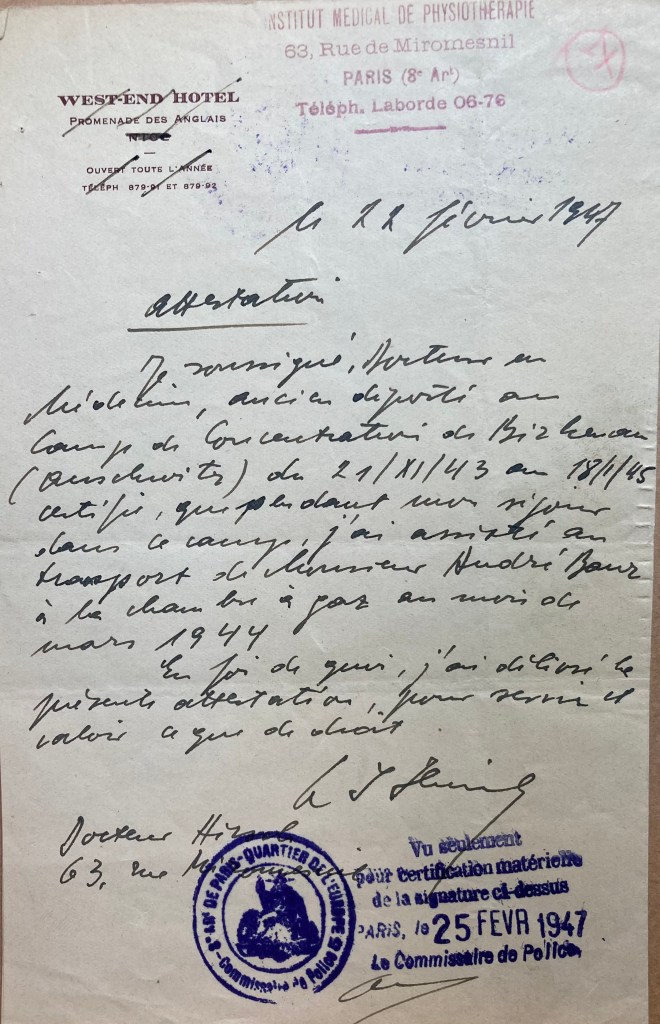 INSTITUT MEDICAL DE PHYSIOTHERAPIE
63, Rue de Miromesnil
PARIS (8e Art)
Téléph. Laborde 06-76
WEST-END HOTEL
PROMENADE DES ANGLAIS
NICE
OUVERT TOUTE L'ANNÉE
TÉLÉPH 879-91 ET 879-92
le 22 février 1947
Attestation
Je soussigné, Docteur en
Médecine, ancien déporté au
Camp de Concentration de Birkenau
(Auschwitz) du 21/XI/43 au 18/1/45
certifie, que pendant mon séjour
dans ce camp, j'ai assisté au
transport de Monsieur André Baur
à la chambre à gaz au mois de
mars 1944
En foi de quoi, j'ai délivré la
présente attestation, pour servir et
valoir ce que de droit.
Docteur
63, rue Miromesnil
8e ARt DE PARIS - QUARTIER DE L'EUROPE
Commissaire de Police
Vu seulement
pour certification matérielle
de la signature ci-dessus
PARIS, le 25 FEVR 1947
Le Commissaire de Police,